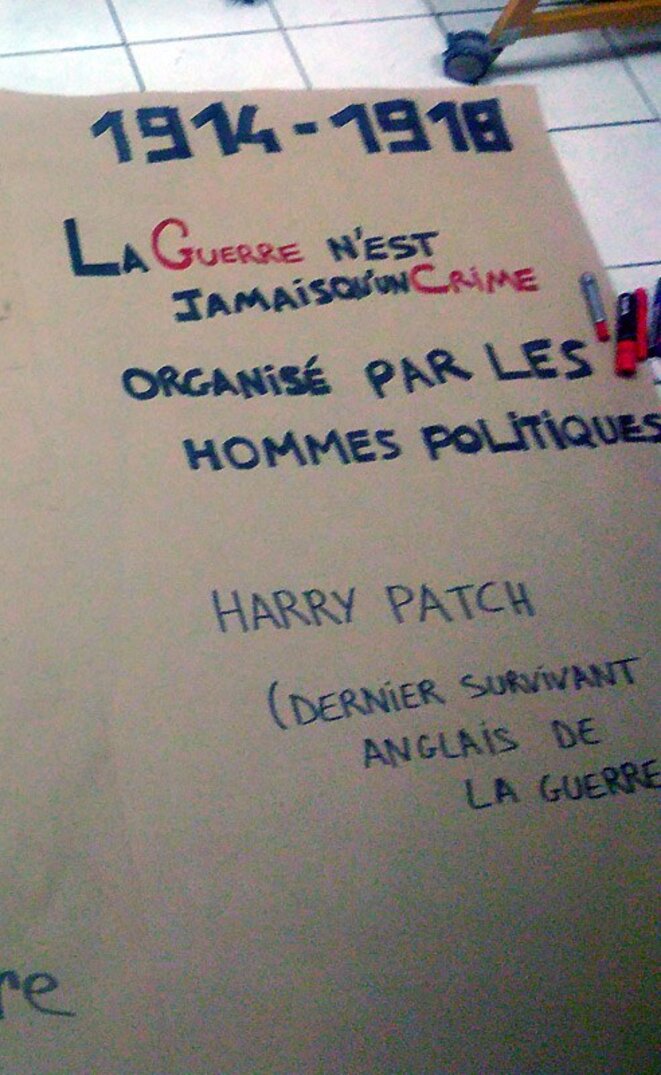 1914-1918
LA GUERRE N'EST
JAMAiSQU'UNCRiME
ORGANiSÉ PAR LES
HOMMES POLiTiQUES
HARRY PATCH
(DERNiER SURViVANT
ANGLAiS DE
LA GUERRE
re